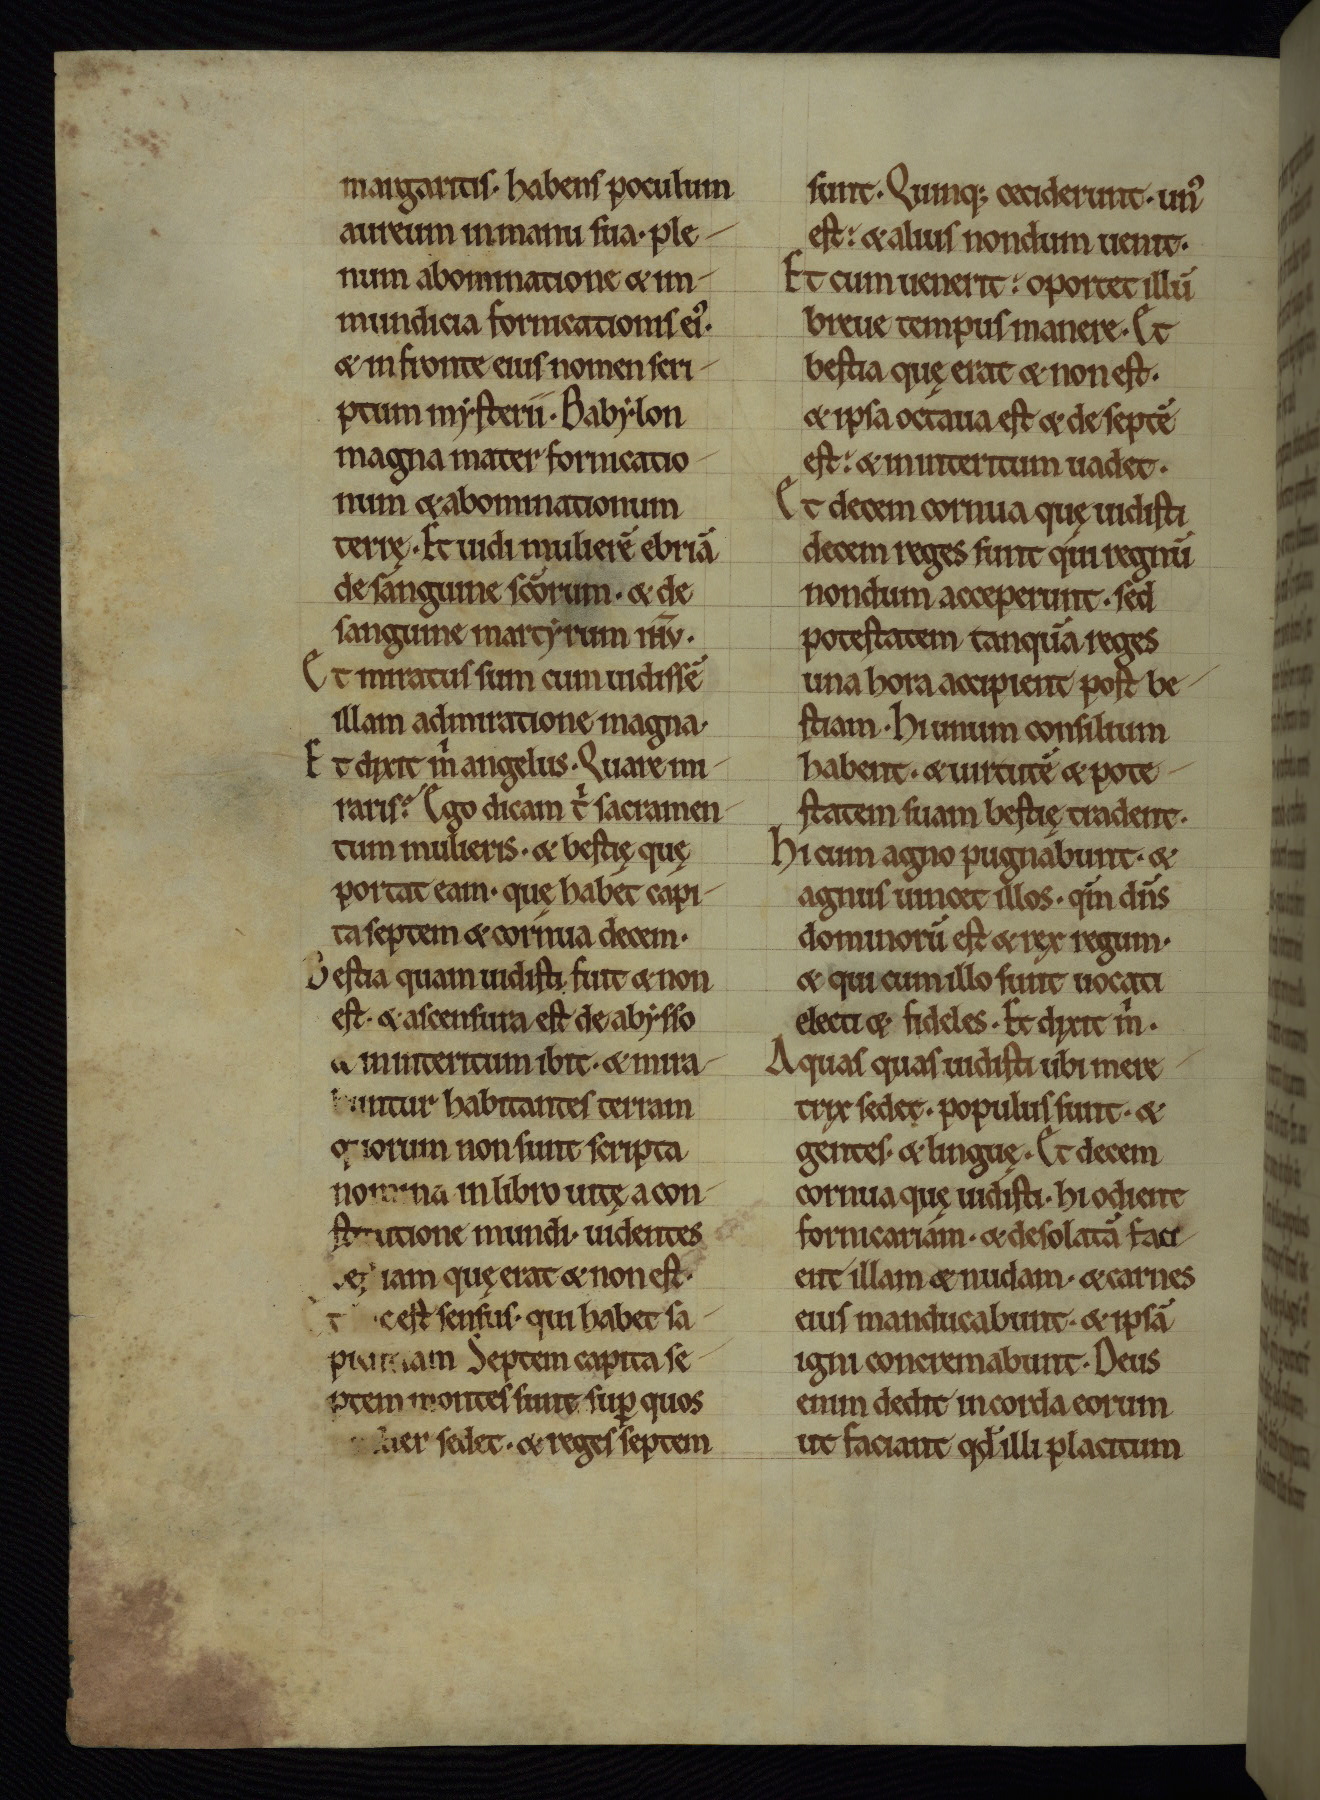 margaritis· habens poculum
aureum in manu sua· ple-
num abominatione & im-
mundicia fornicationis ei᾽·
& in fronte eius nomen scri-
ptum mẏsteriū· Babẏlon
magna mater fornicatio-
num & abominationum
terrę· Et uidi mulierē ebriā
de sanguine scōrum· & de
sanguine martẏrum ih̅u·
Et miratus sum cum uidissē
illam admiratione magna·
Et dixit m̅ angelus· Quare mi-
raris? Ego dicam t̅ sacramen-
tum mulieris· & bestię quę
portat eam· quę habet capi-
ta septem & cornua decem·
Bestia quam uidisti fuit & non
est· & ascensura est de abẏsso
& in interitum ibit· & mira-
buntur habitantes terram
quorum non sunt scripta
nomina in libro uitę a con-
stitutione mundi· uidentes
iam quę erat & non est·
est sensus· qui habet sa-
pientiam Septem capita se-
ptem montes sunt sup̱ quos
sedet· & reges septem
sunt· Quinq; ceciderunt· un᾽
est: & alius nondum uenit·
Et cum uenerit: oportet illū
breue tempus manere· Et
bestia quę erat & non est·
& ipsa octaua est & de septē
est: & in interitum uadet·
Et decem cornua quę uidisti
decem reges sunt qui regnū
nondum acceperunt· sed
potestatem tanquā reges
una hora accipient post be-
stiam· Hi unum consilium
habent· & uirtutē & pote-
statem suam bestię tradent·
Hi cum agno pugnabunt· &
agnus uincet illos· qm̅ dn̅s
dominorū est & rex regum·
& qui cum illo sunt uocati
electi & fideles· Et dixit m̅·
Aquas quas uidisti ubi mere-
trix sedet· populus sunt· &
gentes· & linguę· Et decem
cornua quę uidisti· hi odient
fornicariam· & desolatā faci-
ent illam & nudam· & carnes
eius manducabunt· & ipsā
igni concremabunt· Deus
enim dedit in corda eorum
ut faciant qd̅ illi placitum